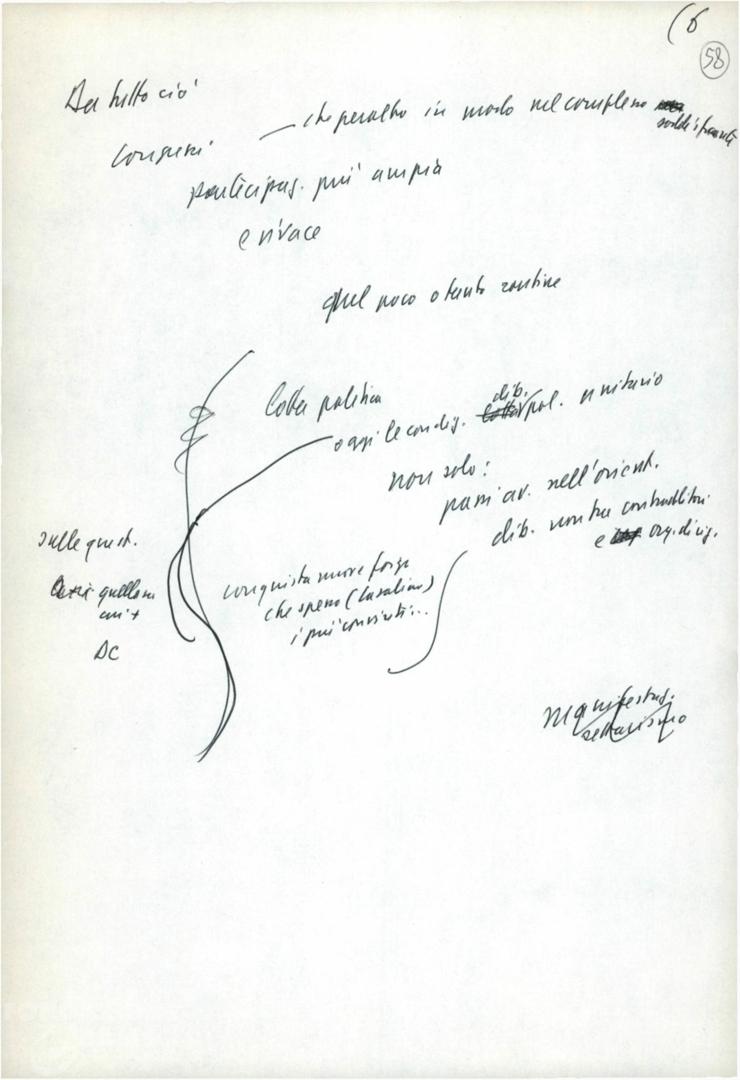 (6
58
Da tutto ciò
congressi
che peraltro in modo nel complesso
soddisfacente
partecipaz. più ampia
e vivace
quel poco o tanto routine
lotta politica
oggi le condiz. lotta dib. pol. unitario
non solo:
passi av. nell'orient.
dib. non tra contraddittori
e org. dirig.
sulle quest.
quelle su
cui +
DC
conquista nuove forze
che spesso
i più convinti...
Manifestaz.
settarismo